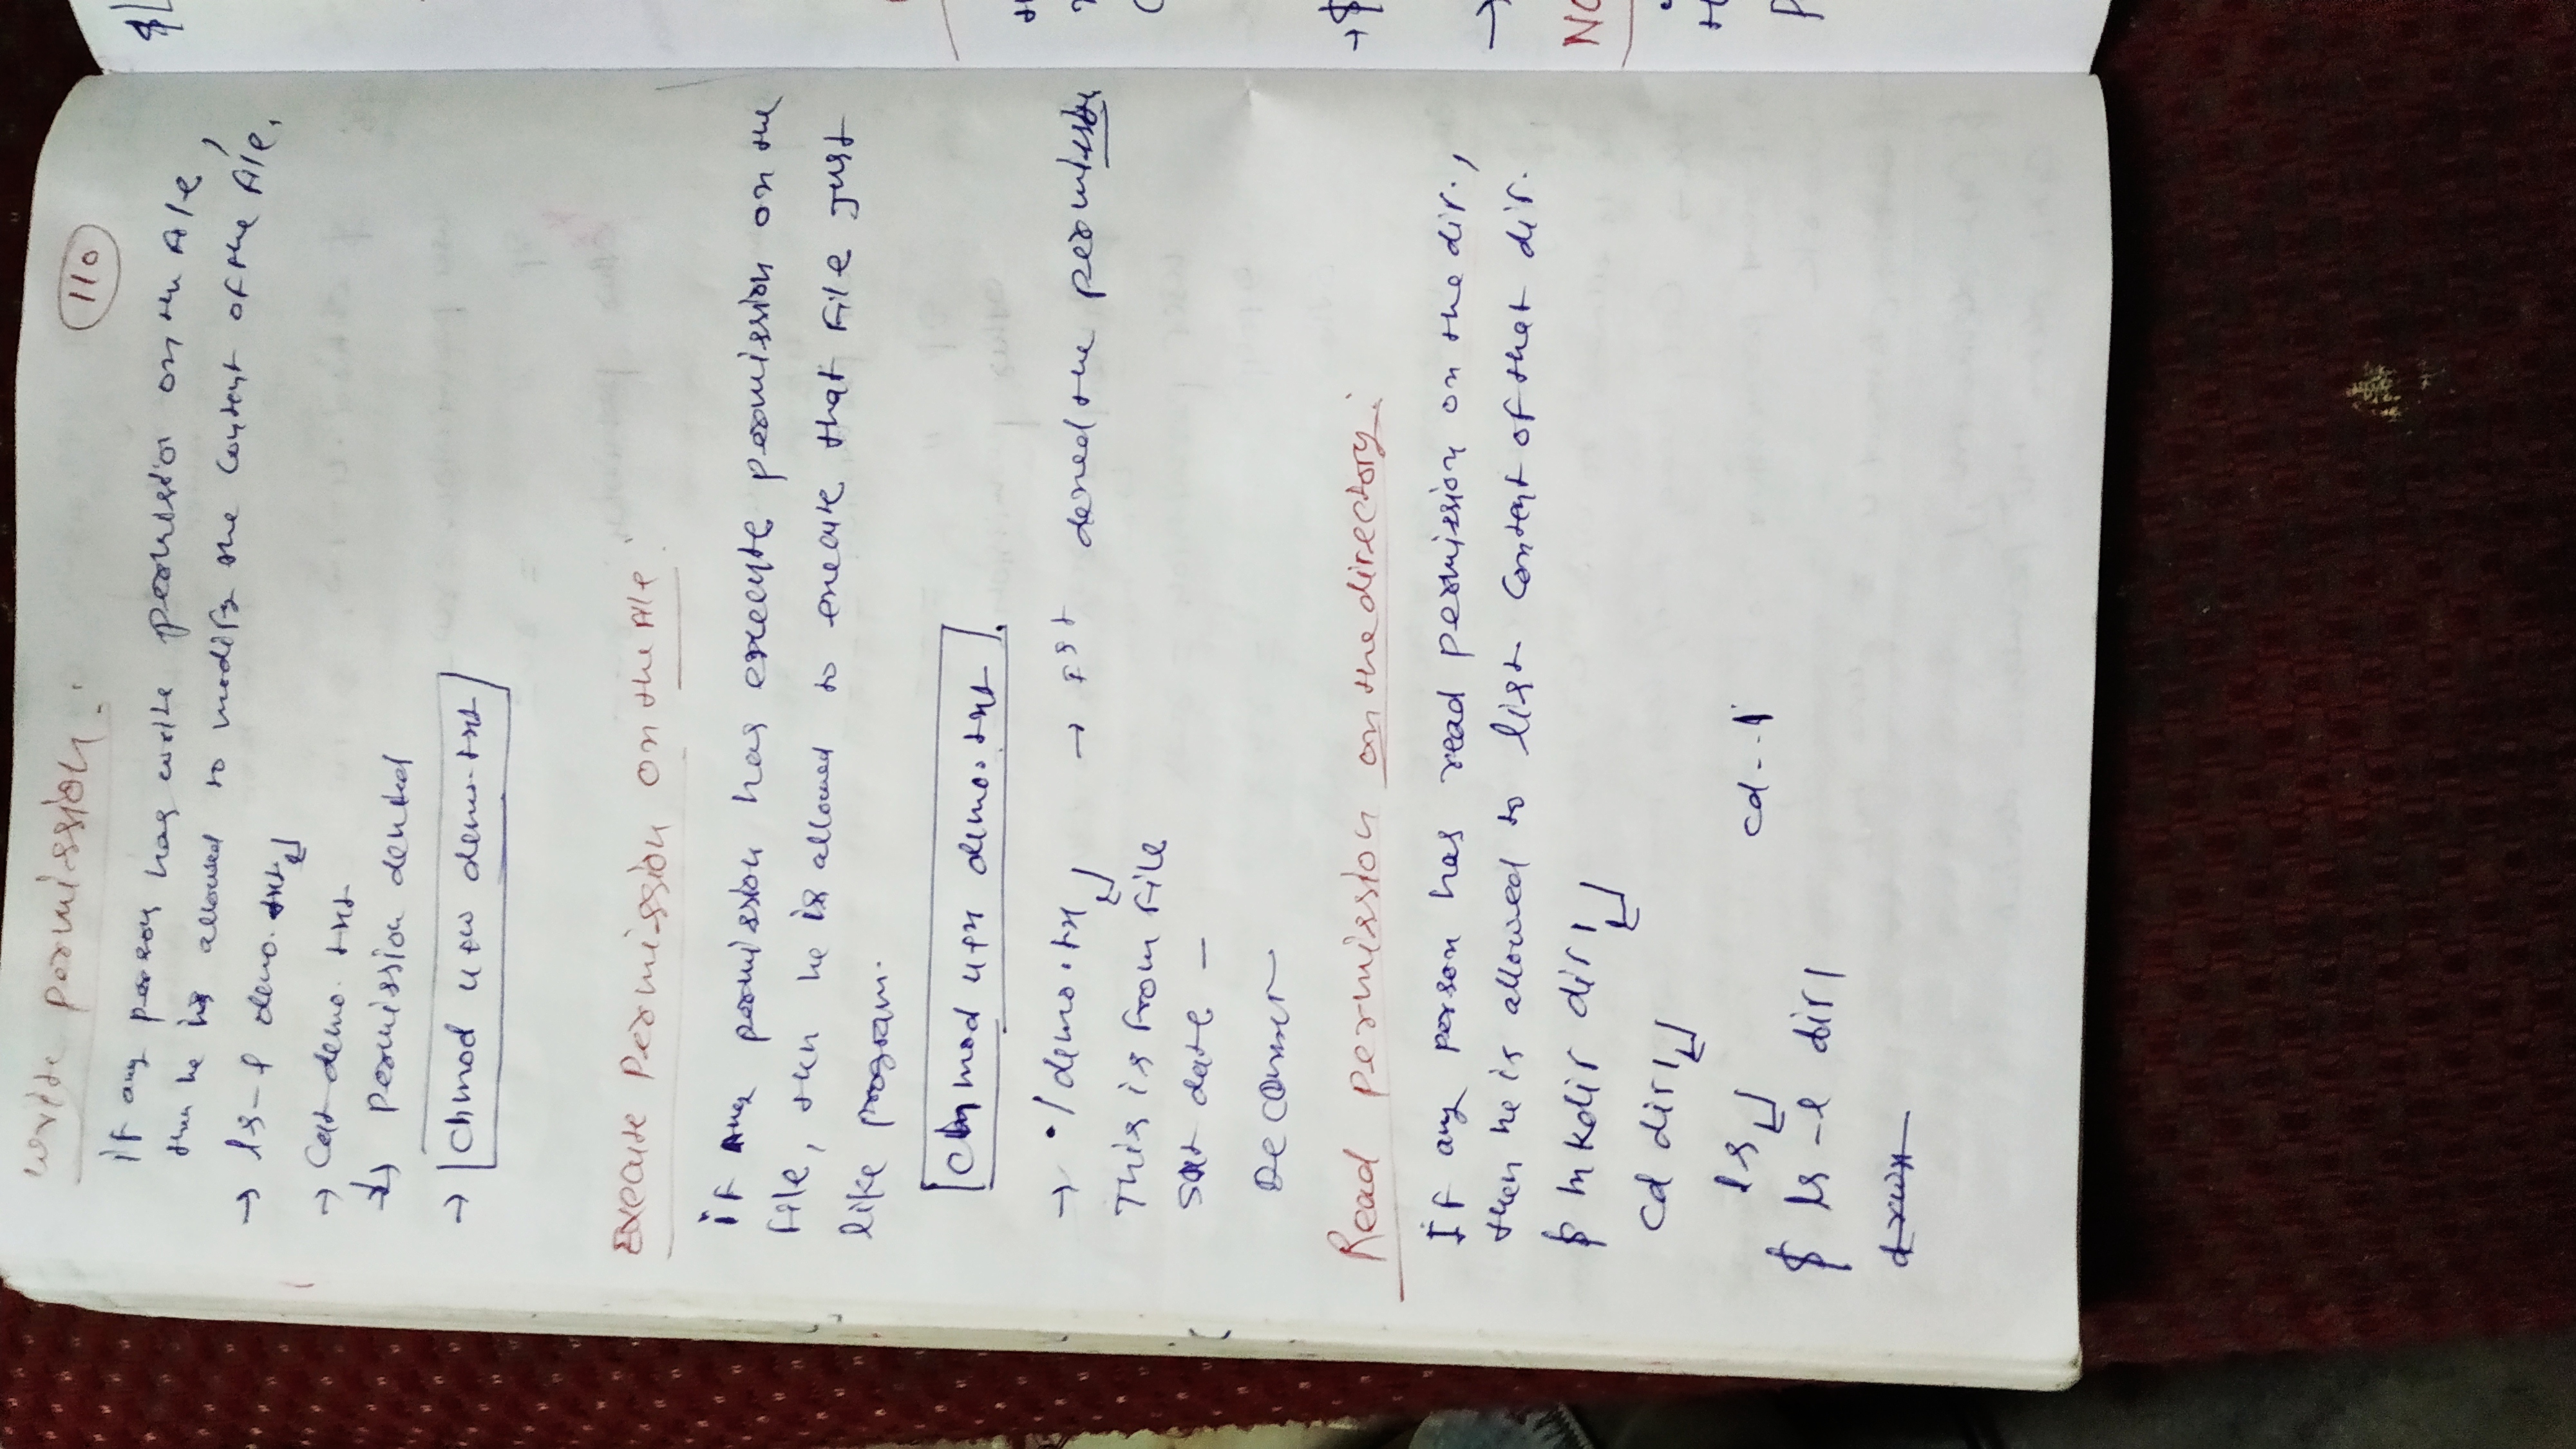 write permission:
110
if any person has write permission on the file,
then he is allowed to modify the content of the file.
→ ls -l demo.txt
→ Cat demo.txt
↳ permission denied
→ chmod u+w demo.txt
Execute Permission on the file:
if any permission has execute permission on the
file, then he is allowed to execute that file just
like program.
chmod u+x demo.txt.
→ ./demo.tx → Ist denied the permission
This is from file
Sat date -
Read permission on the directory:
If any person has read permission on the dir.,
then he is allowed to list content of that dir.
$ mkdir dir1
cd dir1
ls cd ..
$ ls -l dir1
drwx